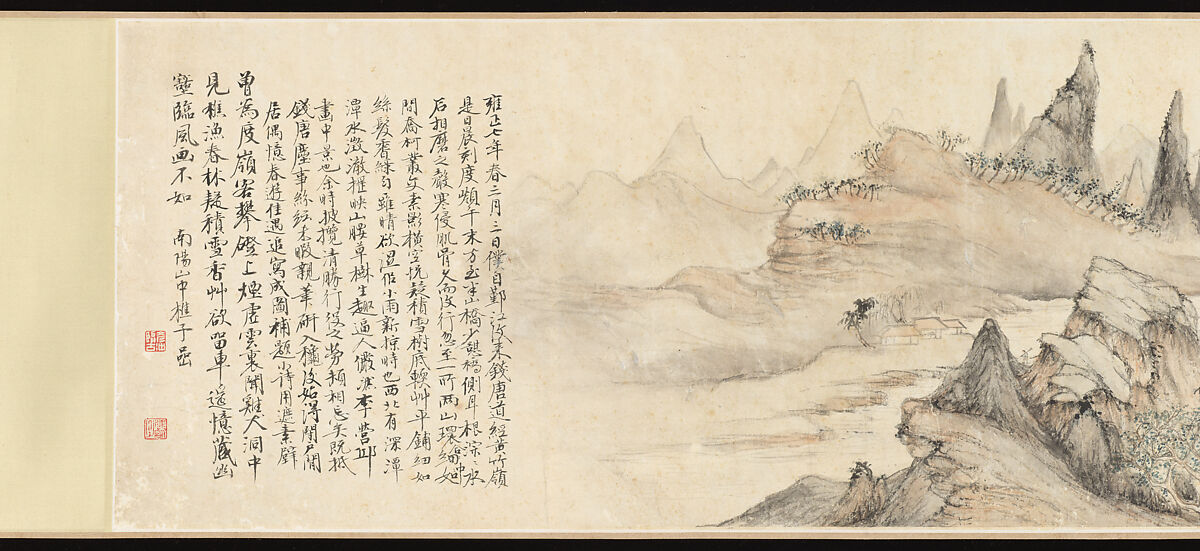 雍正七年春二月三日僕自鄞江後來錢唐道經黃竹嶺
是日晨刻度嶺千未方至半山橋少憩橋側耳根淙水
石相磨之聲寒侵肌骨久而後行忽至一所兩山環繞如
間喬柯叢交素影橫空恍疑積雪樹底輭艸平鋪細如
絲髮香綠勻雖晴欲溼俗小雨新掠時也西北有深潭
潭水澂澈摧映山腰草樹生趣逼人儼然李營邱
畫中景也余時披攬清勝行役之勞頓相忘矣既抵
錢唐塵事絲紜未暇親筆研入穐後始得閉戶閒
居偶憶春遊佳遇追寫成圖補題小詩用遮素壁
曾為度嶺客攀磴上煙虛雲裏聞雞犬洞中
見樵漁春林疑積雪香艸欲留車遙憶藏幽
壑臨風画不如
南陽山中樵子嵒